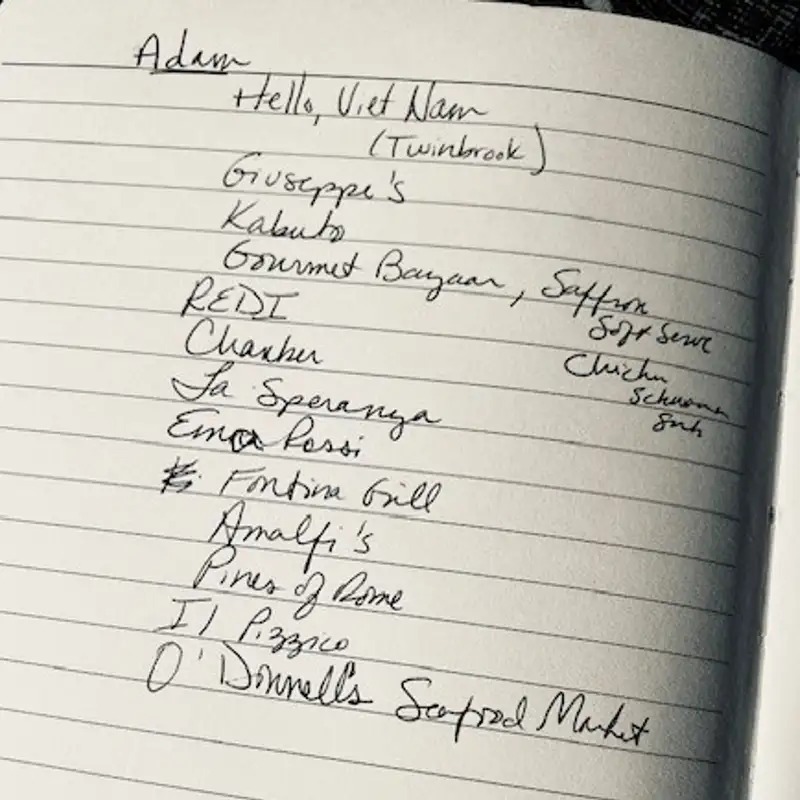 Adam
Hello, Viet Nam
(Twinbrook)
Giuseppe's
Kabuto
Gourmet Bazaar, Saffron
Soft Serve
REDI
Chicken
Schwarma
Sub
Chamber
La Speranza
Rossi
Fontina Grill
Amalfi's
Pines of Rome
Il Pizzico
O'Donnell's Seafood Market